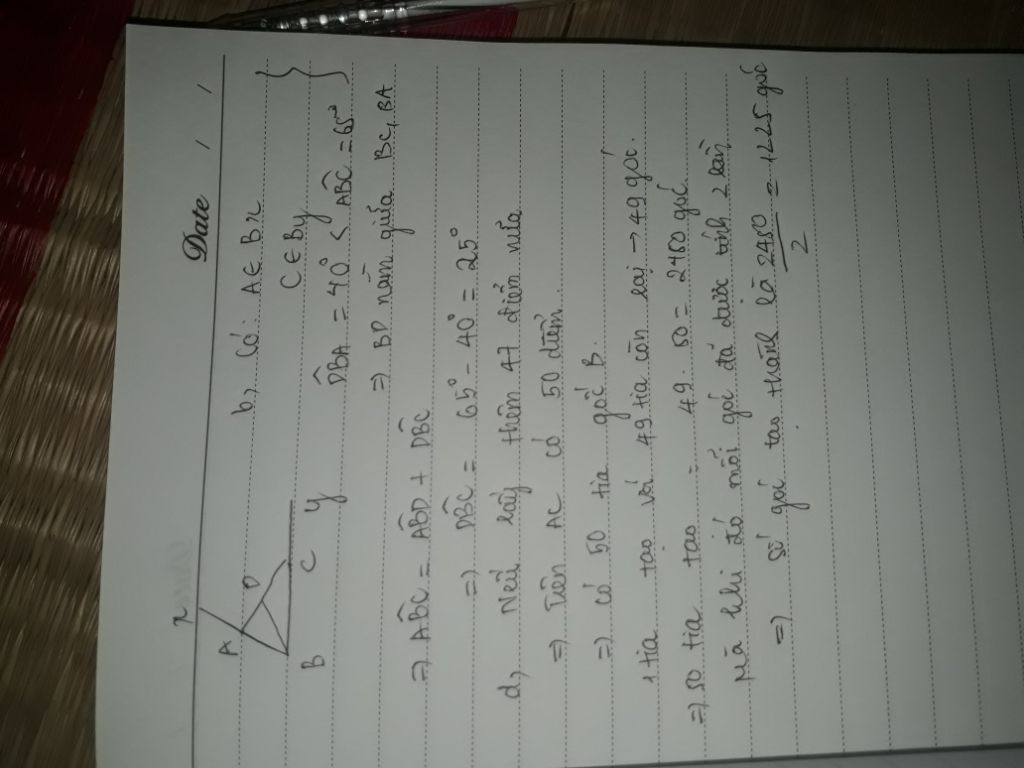 Date / /
x
A
D
B C y
b, Có: A ∈ Bx }
C ∈ By }
D̂BA = 40° < ÂBC = 65° }
⇒ BD nằm giữa BC, BA
⇒ ABĈ = ABD̂ + DBĈ
⇒ DBĈ = 65° - 40° = 25°
d, Nếu lấy thêm 47 điểm nữa
⇒ Trên AC có 50 điểm.
⇒ Có 50 tia gốc B.
1 tia tạo với 49 tia còn lại → 49 góc.
⇒ 50 tia tạo: 49. 50 = 2450 góc
Mà khi đó mỗi góc đã được tính 2 lần
⇒ Số góc tạo thành là 2450/2 = 1225 góc